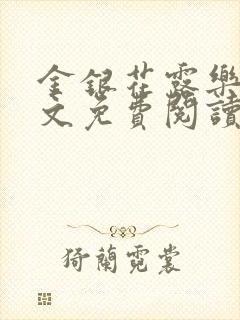 金銀花露樂
文免費閱讀
猗蘭霓裳